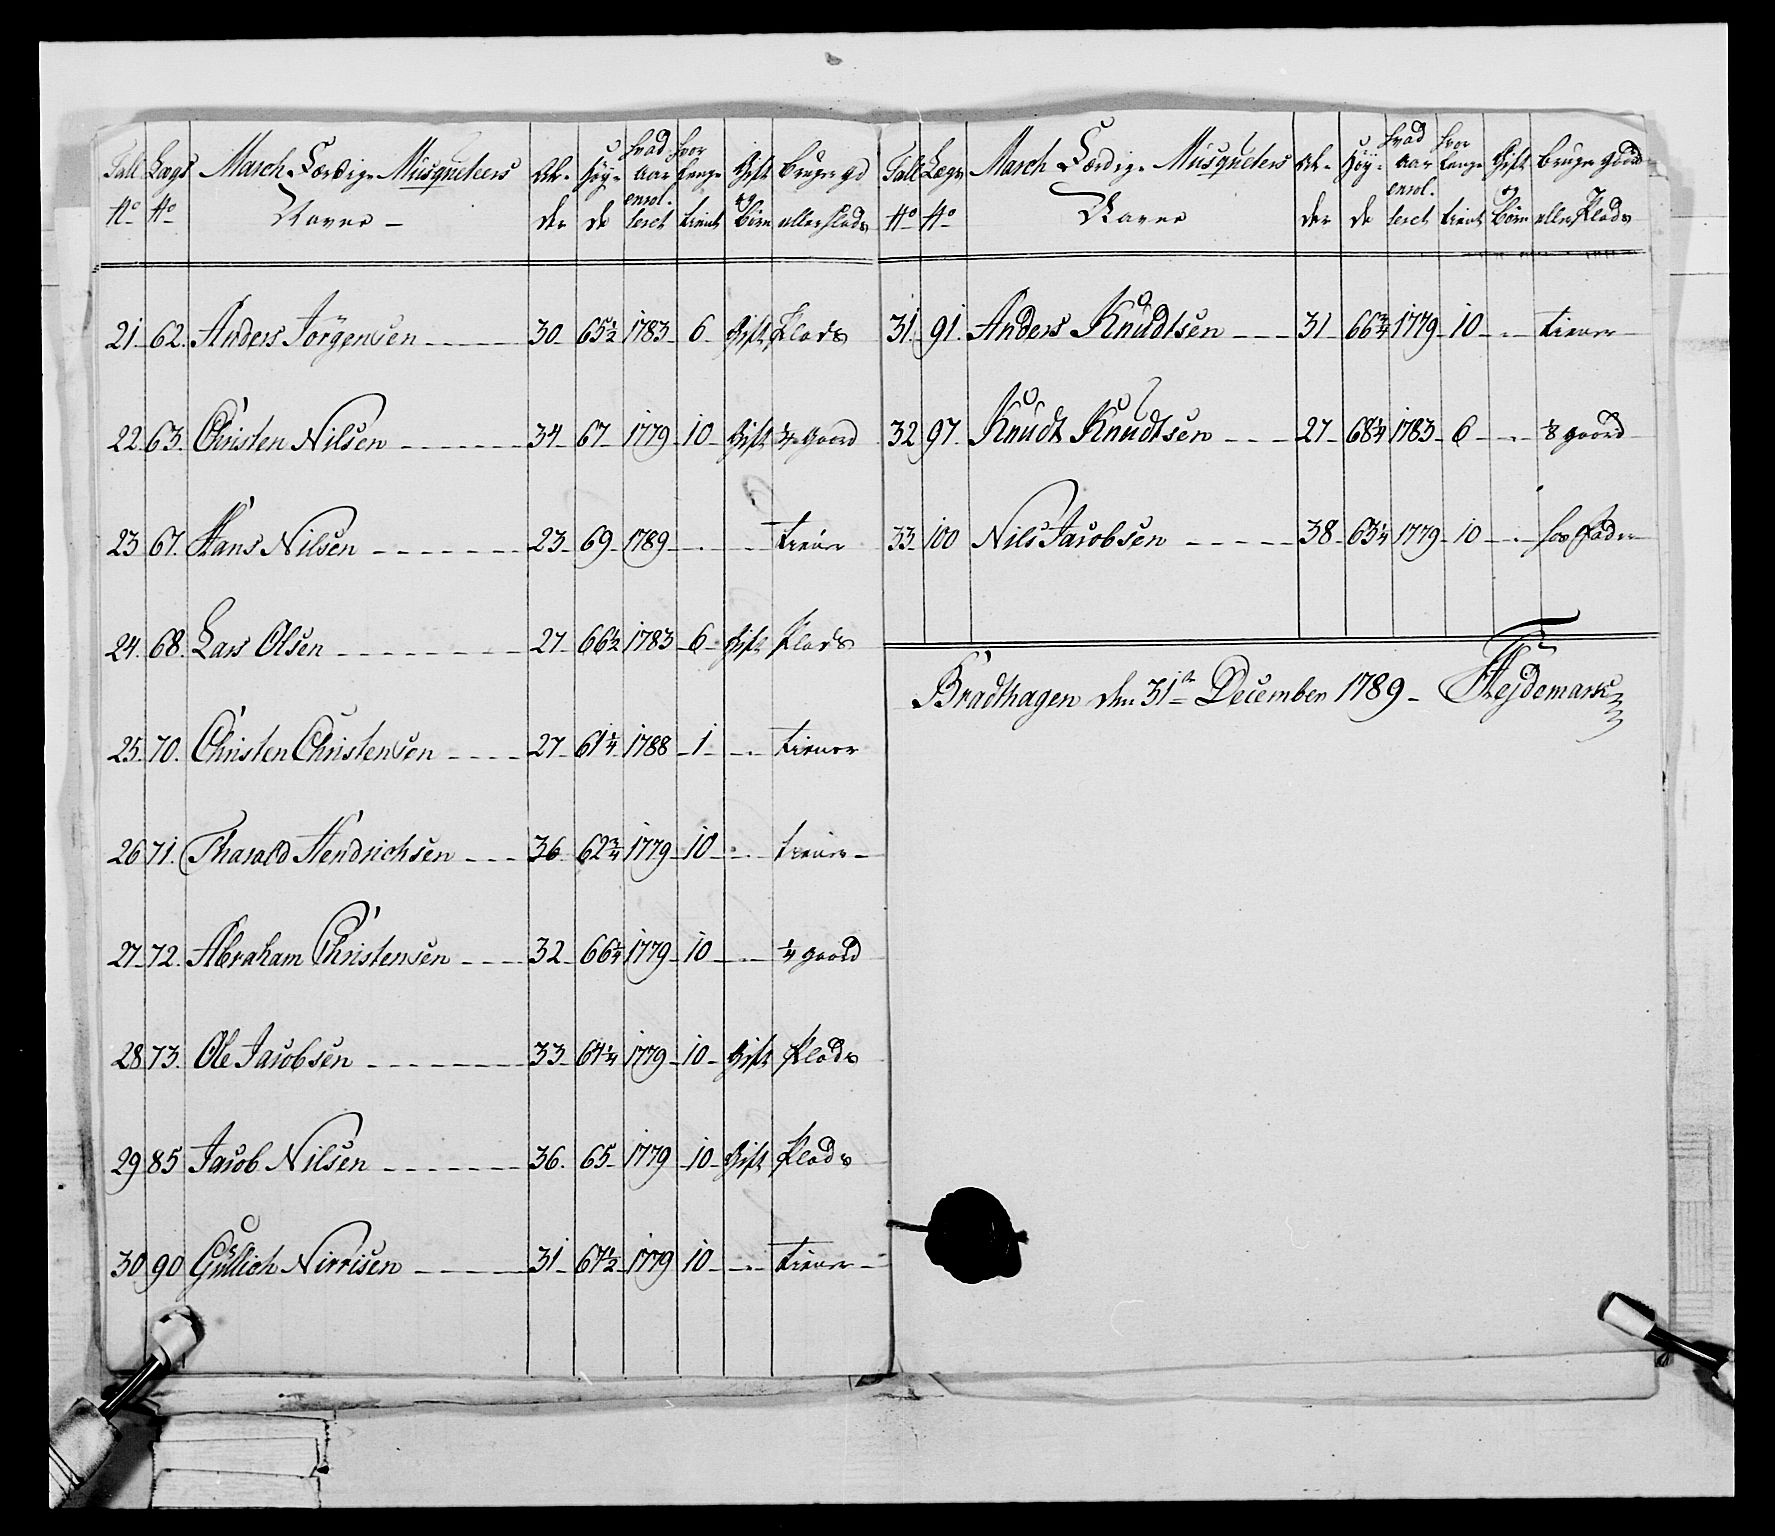 Tall No Lægs No March Færdige Musqueteers Navne - Al- der Høy- de hvad aar enrol- leret hvor længe tient Gift og börn bruger gd eller Plads
21 62. Anders Jörgensen 30 65½ 1783 6 Gift Plads
22 63. Christen Nilsen 34 67 1779 10 Gift gaard
23 67. Hans Nilsen 23 69 1789 - - tiener
24. 68. Lars Olsen 27 66½ 1783 6 Gift Plads
25. 70. Christen Christensen 27 61¼ 1788 1 - tiener
26 71. Tharald Hendrichsen 36 62¾ 1779 10 - tiener
27 72. Abraham Christensen 32 66¼ 1779 10 - ¼ gaard
28 73. Ole Jacobsen 33 64¼ 1779 10 Gift Plads
29 85 Jacob Nilsen 36. 65 1779 10 Gift Plads
30 90 Gullich Nirrisen 31 67½ 1779 10 - tiener
Tall No Lægs No March Færdige Musqueters Navne Al- der Høy- de hvad aar enrol- leret hvor længe tient Gift og börn bruger gaard eller Plads
31. 91. Anders Knudtsen 31 66¾ 1779 10 - tiener
32 97. Knudt Knudtsen 27 68¼ 1783 6 - ⅛ gaard
33 100 Nils Jacobsen 38 63¼ 1779 10 - hos fader
Bradhagen den 31te December 1789 - Hejdemark